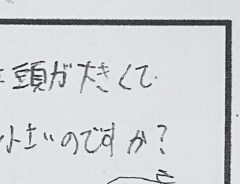 頭が大きくて
小さいのですか?